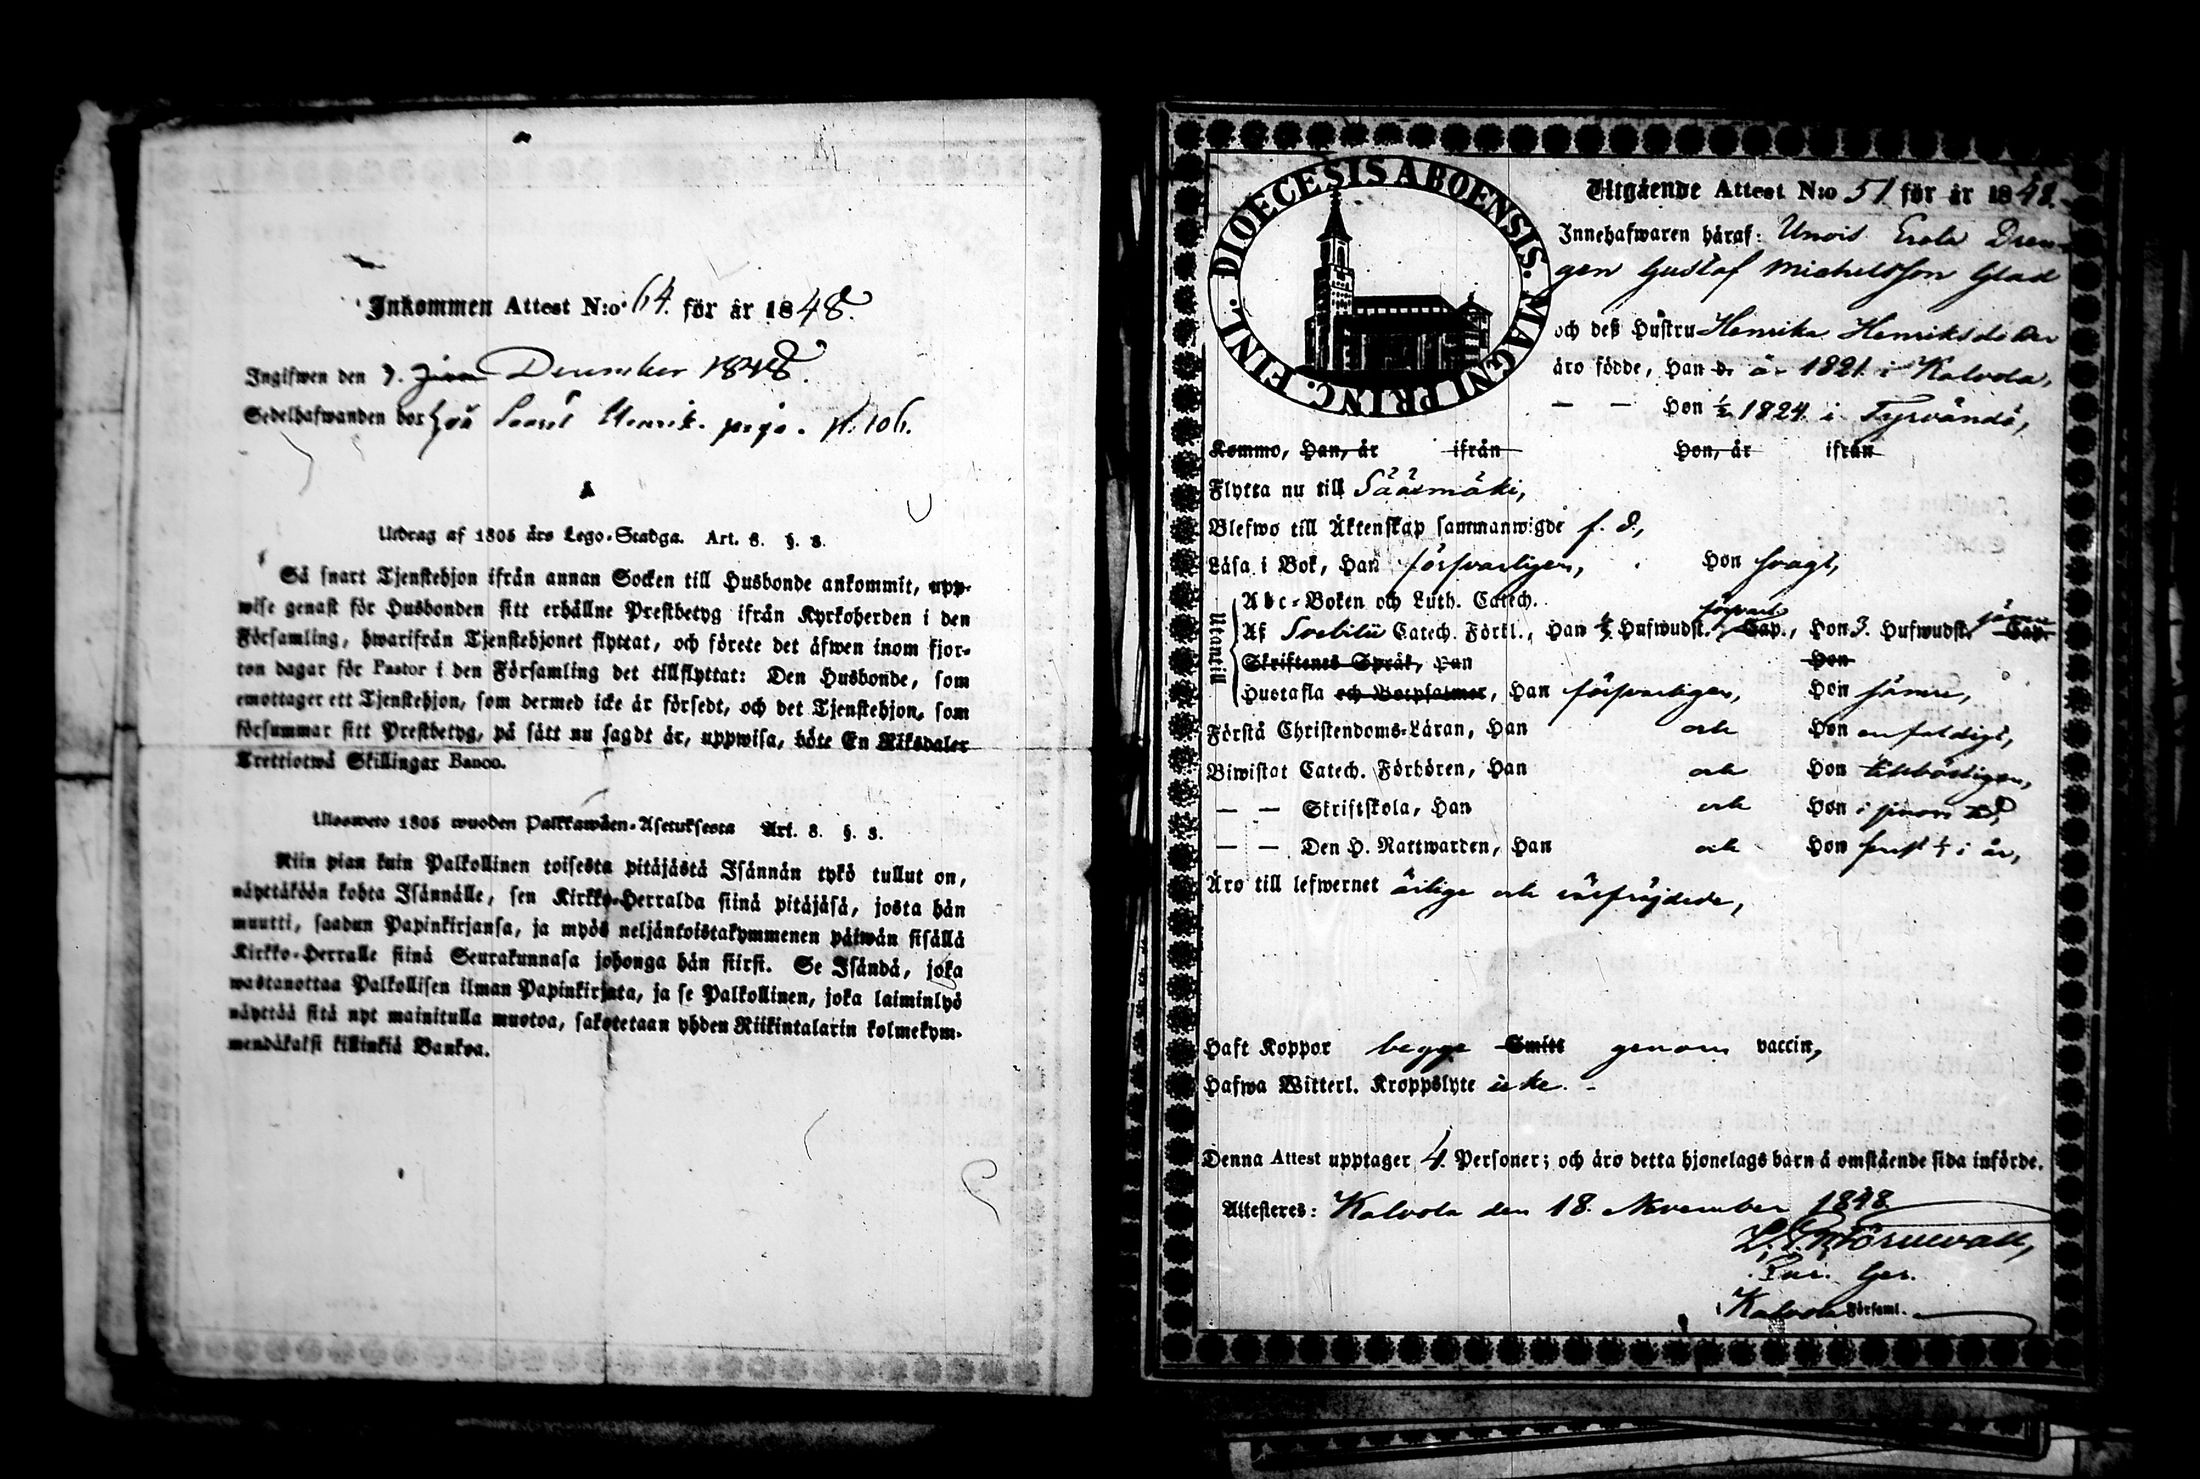 Inkommen Attest N:o 64. för år 1848.
Ingifwen den 9. December 1848.
Sedelhafwanden bor hos p. 106.
Utdrag af 1805 års Lego-Stadga. Art. 8. §. 8.
Så snart Tjenstehjon ifrån annan Socken till Husbonde ankommit, upp-
wise genast för Husbonden sitt erhållne Prestbetyg ifrån Kyrkoherden i den
Församling, hwarifrån Tjenstehjonet flyttat, och förete det äfwen inom fjor-
ton dagar för Pastor i den Församling det tillflyttat: Den Husbonde, som
emottager ett Tjenstehjon, som dermed icke är försedt, och det Tjenstehjon, som
försummar sitt Prestbetyg, på sätt nu sagdt är, uppwisa, böte En Riksdaler
Trettiotwå Skillingar Banco.
Ulosweto 1805 wuoden Palkkawäen-Asetuksesta Art. 8. §. 8.
Niin pian kuin Palkollinen toisesta pitäjästä Isännän tykö tullut on,
näyttäköön kohta Isännälle, sen Kirkko-Herralda siinä pitäjäsä, josta hän
muutti, saadun Papinkirjansa, ja myös neljäntoistakymmenen päiwän sisällä
Kirkko-Herralle siinä Seurakunnasa johonga hän siirsi. Se Isändä, joka
wastanottaa Palkollisen ilman Papinkirjata, ja se Palkollinen, joka laiminlyö
näyttää sitä nyt mainitulla muotoa, sakotetaan yhden Riikintalarin kolmekym-
mendäkaksi killinkiä Bankoa.
DIOECESIS ABOENSIS. MAGNI PRINC. FINL.
Utgående Attest N:o 51 för år 1848.
Innehafwaren häraf: Unois Erola Dren-
gen Gustaf Michelsson Glad
och deß Hustru Henrika Henriksdotter
äro födde, Han år 1821 i Kalvola,
— — Hon 1824 i Tyrvändö,
Kommo, Han, år ifrån Hon, år ifrån
Flytta nu till Sääsmäki,
Blefwo till Äktenskap sammanwigde f. d.,
Läsa i Bok, Han försvarligen, Hon svagt,
Utantill
Abc-Boken och Luth. Catech.
Af Svebilii Catech. Förkl., Han Hufwudst. försvarl. Cap., Hon 3. Hufwudst. Cap.
Skriftenes Språk, Han Hon
Hustafla och Botpsalmer, Han försvarligen, Hon sämre,
Förstå Christendoms-Läran, Han och Hon enfaldigt,
Biwistat Catech. Förhören, Han och Hon
— — Skriftskola, Han och Hon i
— — Den H. Nattwarden, Han och Hon i år,
Äro till lefwernet ärlige och välfräjdade,
Haft Koppor begge Smitt genom vaccin,
Hafwa Witterl. Kroppslyte icke.
Denna Attest upptager 4. Personer; och äro detta hjonelags barn å omstående sida införde.
Attesteres: Kalvola den 18. November 1848.
i Kalvola Församl.